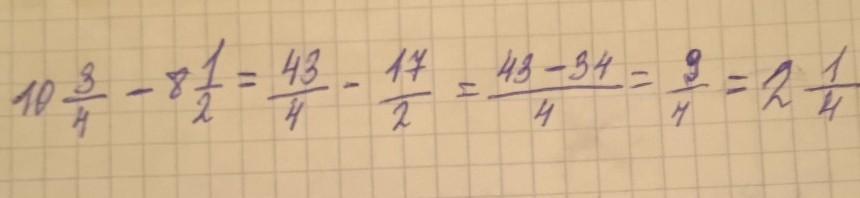 10 3/4 - 8 1/2 = 43/4 - 17/2 = 43-34/4 = 9/4 = 2 1/4